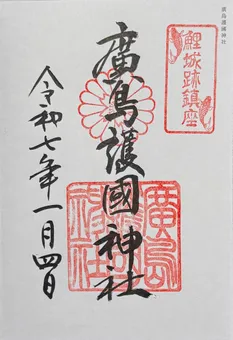 廣島護國神社
鯉城跡鎮座
廣島護國神社
令和七年一月四日
廣島護國神社